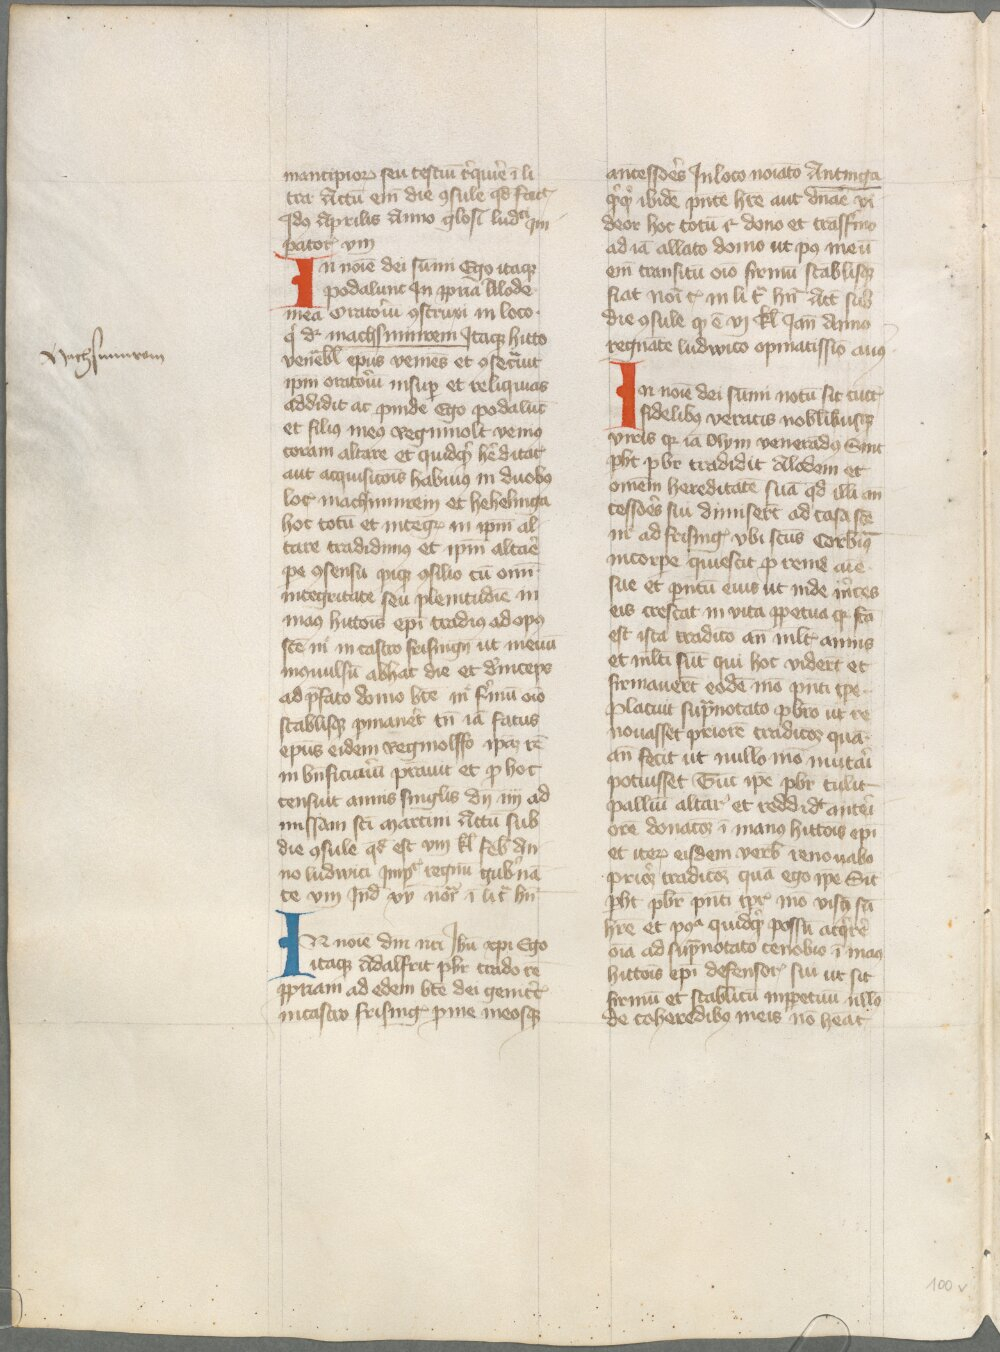 mancipior seu testiu r̄quiē i li
tra Actū em̄ die ꝯsule qd fecit
Idꝰ Aprilis Anno glosi ludci im
pator viii
In noīe dei sūmi Ego itaqꝫ
podalunc In ꝓpria Alode
mea Oratoriū ꝯstruxi in loco
q̄ dr machsminrein Itaqꝫ hitto
venēbl epūs veniēs et ꝯsecūit
ipm oratoriū insup et reliquias
addidit ac pinde Ego podalūc
et filiꝰ meꝰ reginolt venio
coram altare et quidqd hēditat
aut acquisitois habuiꝰ in duobꝰ
loc machminrein et hehelinga
hoc totū et integr in ipm al
tare tradidimꝰ et ipm altaē
pe ꝯsensu piqꝫ ꝯsilio cū om̄
integritate seu plenitudie in
manꝰ hittois epi tradiꝰ ad opꝰ
sce m̄ in castro frisinge ut meum
inouulsū abhac die et dinceps
ad p̄fato domo bte m̄ firmū oīo
stablisqꝫ pmanet tn̄ ia fatus
epūs eidem reginolffo ipaꝫ rē
in bn̄ficiariū prauit et p hoc
censuit annis singlis dn̄ iiij ad
missam sci martini Actū sub
die ꝯsule qd est viii kl feb An
no ludwici Imps regnū gubnā
te viii Ind vij nor i lit hn̄
In noīe dm̄ nri Ihū xpi Ego
itaqꝫ Adalfrit pbr trado rē
ꝓpriam ad edem bte dei genitc
in castro frising p me meosqꝫ
Machsminreain
ancessoēs In loco noīato Antinga
qꝫqd ibidē pnte hre aut dn̄are vi
deor hoc totū r dono et trassfūdo
ad iā allato domo ut pꝰ meū
em̄ transitū oīo firmū stablisqꝫ
fiat not r in li t hn̄ Act sub
die ꝯsule qd ē vj kl Jan Anno
regnāte ludwico opinatissīo auiꝰ
In noīe dei sūmi notū sit cūct
fidelibꝰ veracis noblibusqꝫ
viris qr iā Olym veneradꝰ Sint
pht pbr tradidit Alodem et
om̄em hereditatē suā qd illi an
tessoēs sui dimiserūt ad casā scē
m̄ ad frising vbi scūs Corbiniꝰ
in corpe quiescit p remē aīe
sue et pntū eiꝰ ut inde merces
eis crescat in vita ppetua qr fcā
est ista tradito an̄ mlt annis
et mlti sūt qui hoc viderūt et
firmauerūt eodē mō pnti tpe
Placuit suprnotato pbro ut re
nouasset priorē traditoꝫ quā
an̄ fecit ut nullo mō mutari
potuisset Tūc ipe pbr tulit
palliū altar et reddidt anteri
orē donatoꝫ i manꝰ hittois epi
et iter eisdem verb renouabo
prioꝫ traditoꝫ quā ego ipe Sit
pht pbr pnti tpe mō visꝰ sū
hre et pꝰa quidqd possū acqrere
oīa ad suprnotato cenobio i manꝰ
hittois epi defensor sui ut sit
firmū et stablitū inppetuū nllō
de coheredibꝰ meis nō heat
100 v